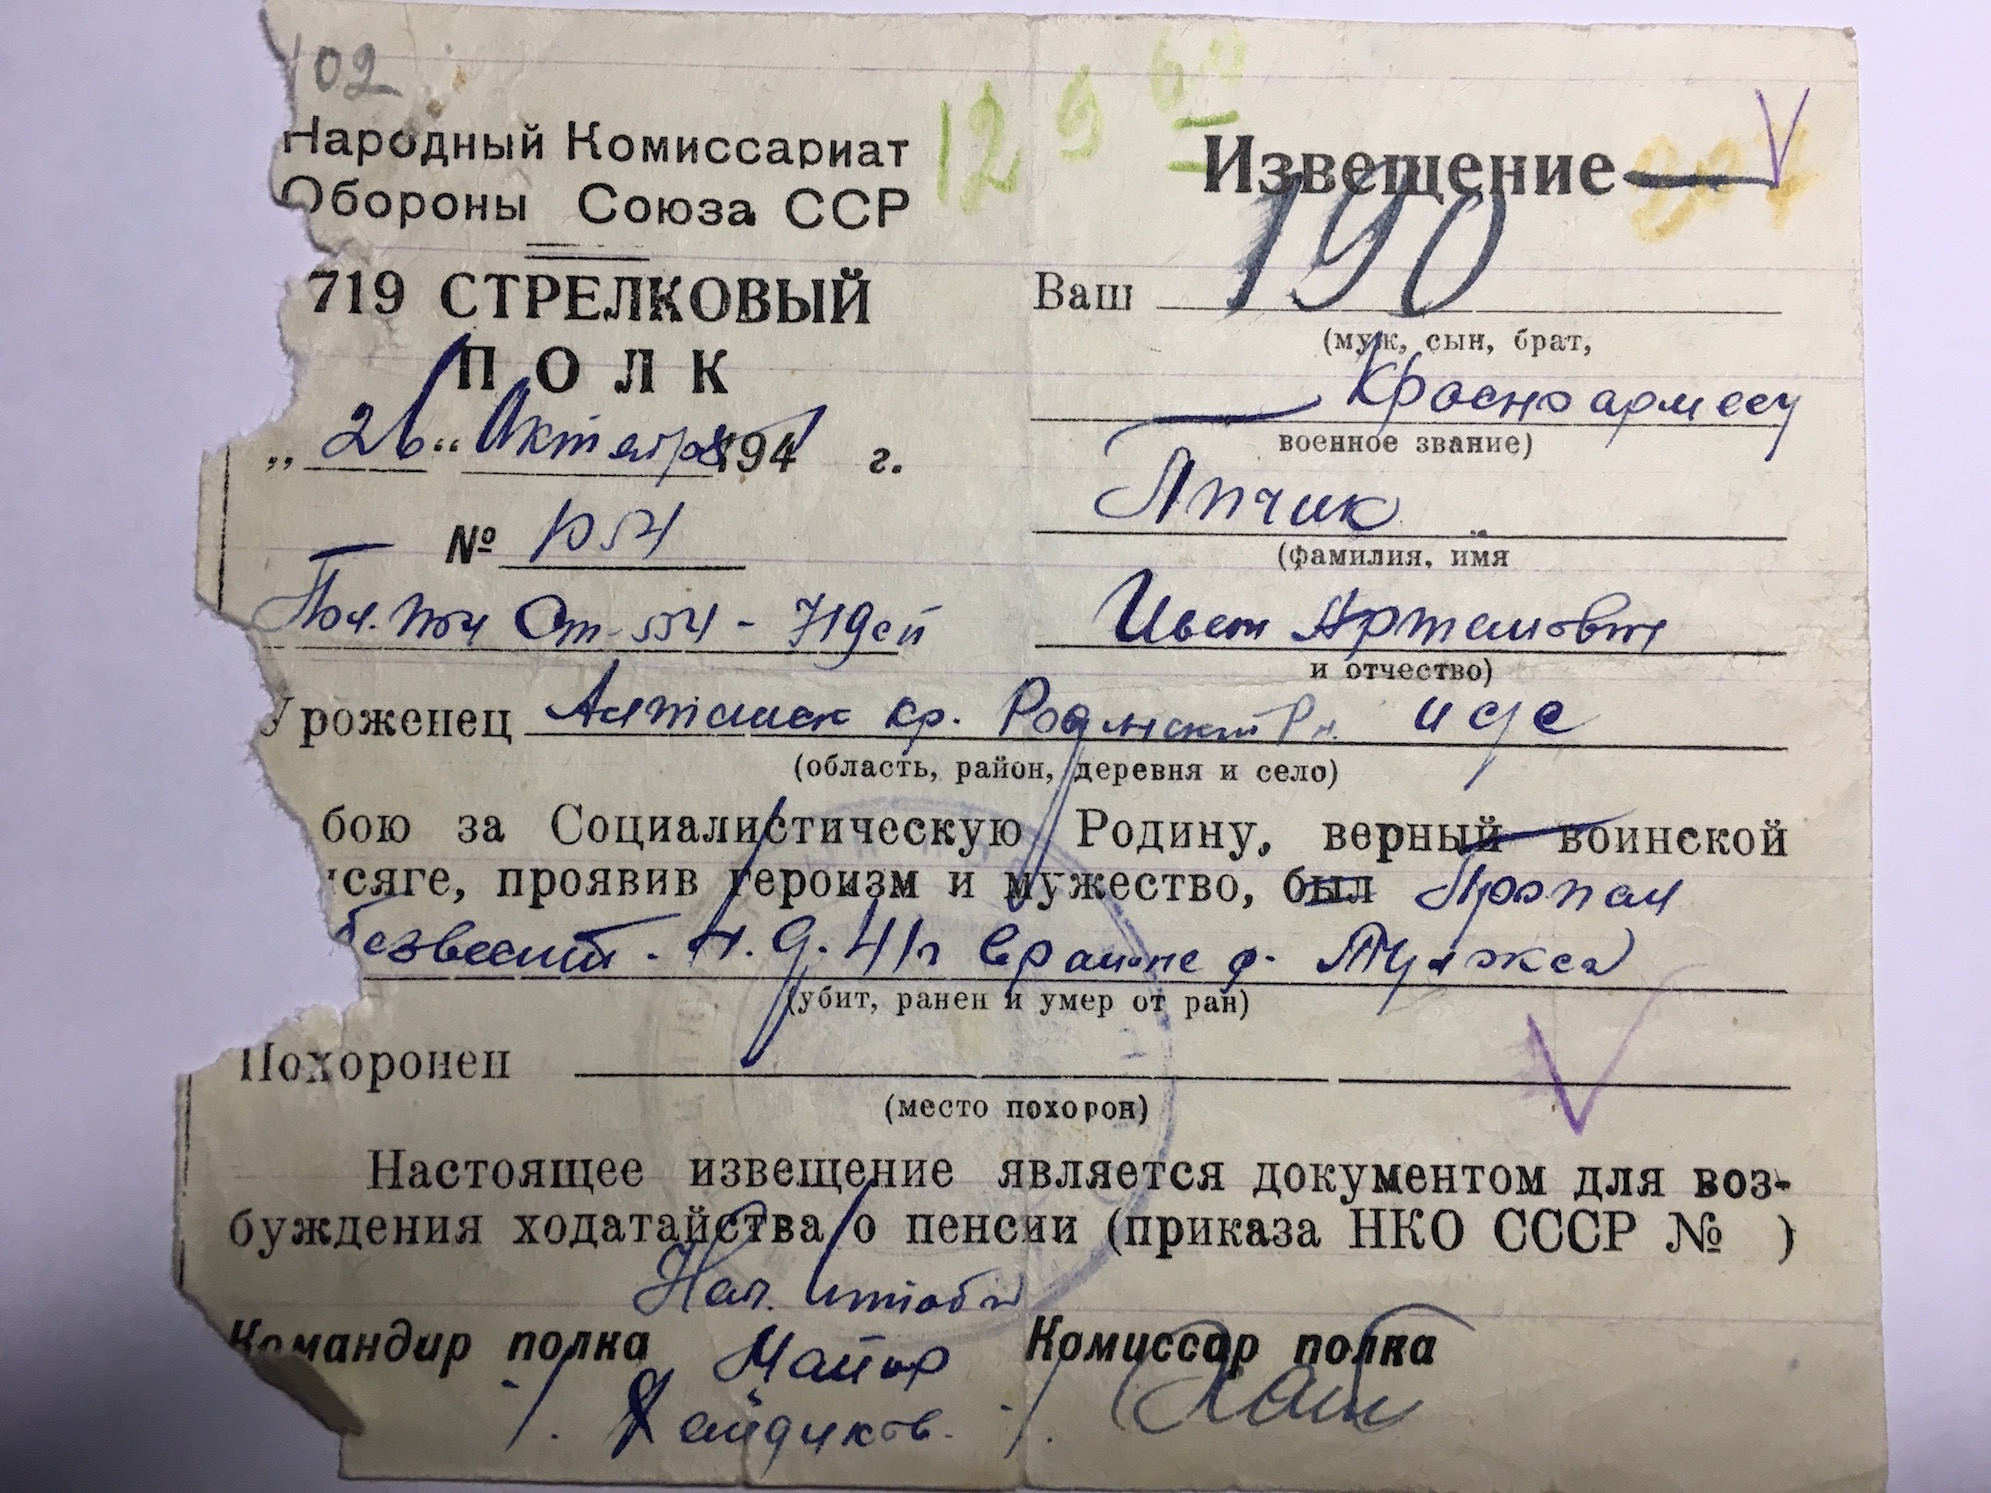 102
12 9
Народный Комиссариат
Обороны Союза ССР
719 СТРЕЛКОВЫЙ
ПОЛК
„26“ Октября 1941 г.
№ 1054
Извещение
190
Ваш
(муж, сын, брат,
Красноармеец
военное звание)
Япчик
(фамилия, имя
Иван Артемович
и отчество)
Уроженец Алтайск кр. Родинский Рн.
(область, район, деревня и село)
бою за Социалистическую Родину, верный воинской
исяге, проявив героизм и мужество, был Пропал
безвести. 4.9.41г в районе
(убит, ранен и умер от ран)
Похоронен
(место похорон)
Настоящее извещение является документом для воз-
буждения ходатайства о пенсии (приказа НКО СССР № )
Нач. штаба
Командир полка Майор
Комиссар полка